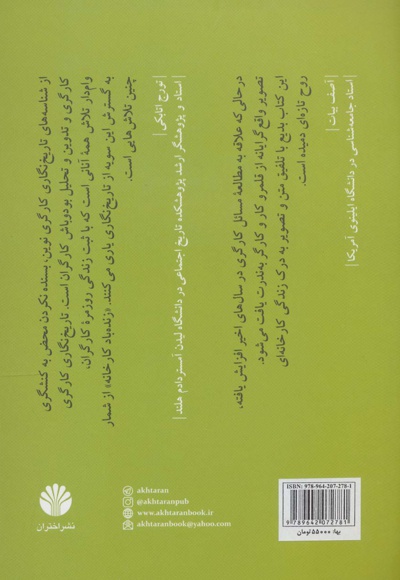 از شناسه‌های تاریخ‌نگاری کارگری نوین، بسنده نکردن محض به کنشگری
کارگری و تدوین و تحلیل بودوباش کارگران است. تاریخ‌نگاری کارگری
وام‌دار تلاش همهٔ آنانی است که با ثبت زندگی روزمرهٔ کارگران،
به گسترش این سویه از تاریخ‌نگاری یاری می‌کنند. «زنده‌باد کارخانه» از شمار
چنین تلاش‌هایی است.
| تورج اتابکی |
| استاد و پژوهشگر ارشد پژوهشکده تاریخ اجتماعی در دانشگاه لیدن آمستردام هلند |
درحالی که علاقه به مطالعه مسائل کارگری در سال‌های اخیر افزایش یافته،
تصویر واقع‌گرایانه از قلمرو کار و کارگر به‌ندرت یافت می‌شود.
این کتاب بدیع با تلفیق متن و تصویر به درک زندگی کارخانه‌ای
روح تازه‌ای دمیده است.
| آصف بیات |
| استاد جامعه‌شناسی در دانشگاه ایلینوی آمریکا |
نشر اختران
akhtaran
@akhtaranpub
www.akhtaranbook.ir
akhtaranbook@yahoo.com
ISBN: 978-964-207-278-1
9 789642 072781
بها: ۵۵۰۰۰ تومان